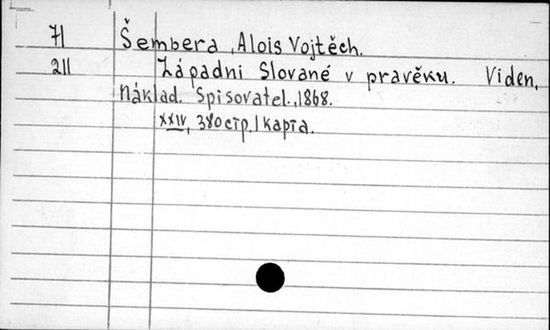 71 Šembera, Alois Vojtěch.
211 Západni Slované v pravěku. Viden,
Náklad. Spisovatel., 1868.
XXIV, 380 стр. 1 карта.